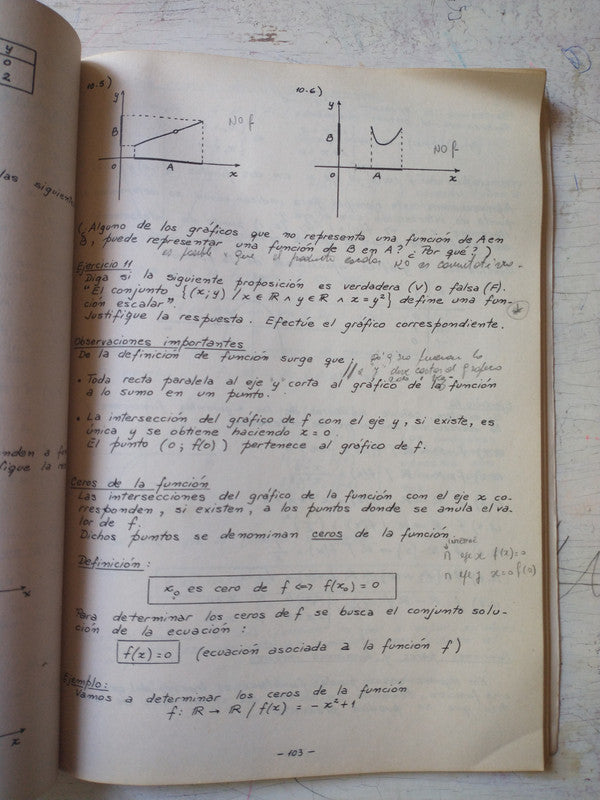 y
0
2
10.5)
y
B
0
A
x
NO f
10.6)
y
B
0
A
x
NO f
las siguiente
(¿Alguno de los gráficos que no representa una función de A en
B, puede representar una función de B en A? ¿Por qué?)
es posible que el producto escalar NO es conmutativo
Ejercicio 11
Diga si la siguiente proposición es verdadera (V) o falsa (F).
"El conjunto {(x;y) / x ∈ R ∧ y ∈ R ∧ x = y²} define una fun-
ción escalar".
Justifique la respuesta. Efectúe el gráfico correspondiente.
Observaciones importantes
De la definición de función surge que:
• Toda recta paralela al eje y corta al gráfico de la función
a lo sumo en un punto.
• La intersección del gráfico de f con el eje y, si existe, es
única y se obtiene haciendo x = 0.
El punto (0; f(0)) pertenece al gráfico de f.
Ceros de la función
Las intersecciones del gráfico de la función con el eje x co-
rresponden, si existen, a los puntos donde se anula el va-
lor de f.
Dichos puntos se denominan ceros de la función.
∩ eje x f(x)=0
∩ eje y x=0 f(0)
Definición:
x₀ es cero de f ⇔ f(x₀) = 0
Para determinar los ceros de f se busca el conjunto solu-
ción de la ecuación:
f(x) = 0 (ecuación asociada a la función f)
Ejemplo:
Vamos a determinar los ceros de la función
f: R → R / f(x) = - x² + 1
x
x
- 103 -